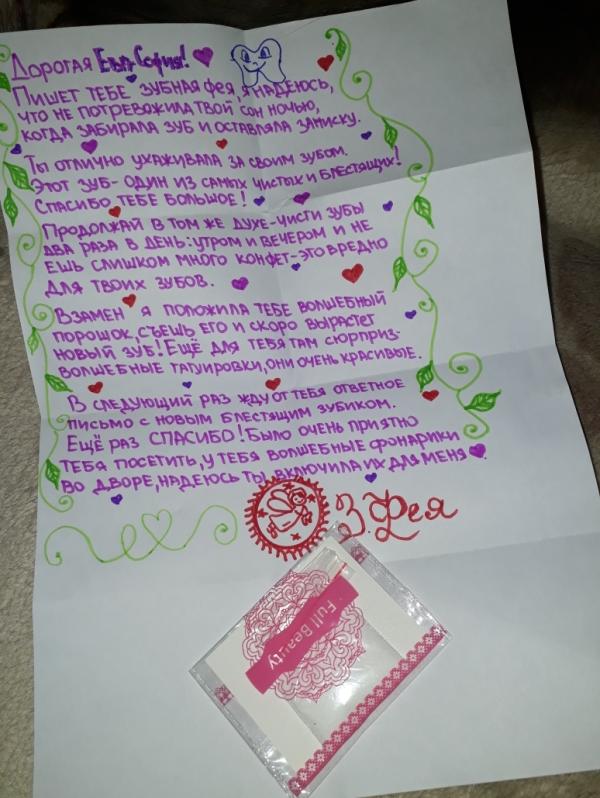 Дорогая Ева-София!
Пишет тебе зубная фея, я надеюсь,
что не потревожила твой сон ночью,
когда забирала зуб и оставляла записку.
Ты отлично ухаживала за своим зубом.
Этот зуб- один из самых чистых и блестящих!
Спасибо тебе большое!
Продолжай в том же духе-чисти зубы
два раза в день: утром и вечером и не
ешь слишком много конфет-это вредно
для твоих зубов.
Взамен я положила тебе волшебный
порошок, съешь его и скоро вырастет
новый зуб! Ещё для тебя там сюрприз-
волшебные татуировки, они очень красивые.
В следующий раз жду от тебя ответное
письмо с новым блестящим зубиком.
Ещё раз СПАСИБО! Было очень приятно
тебя посетить, у тебя волшебные фонарики
во дворе, надеюсь ты включила их для меня
З.Фея
Full Beauty